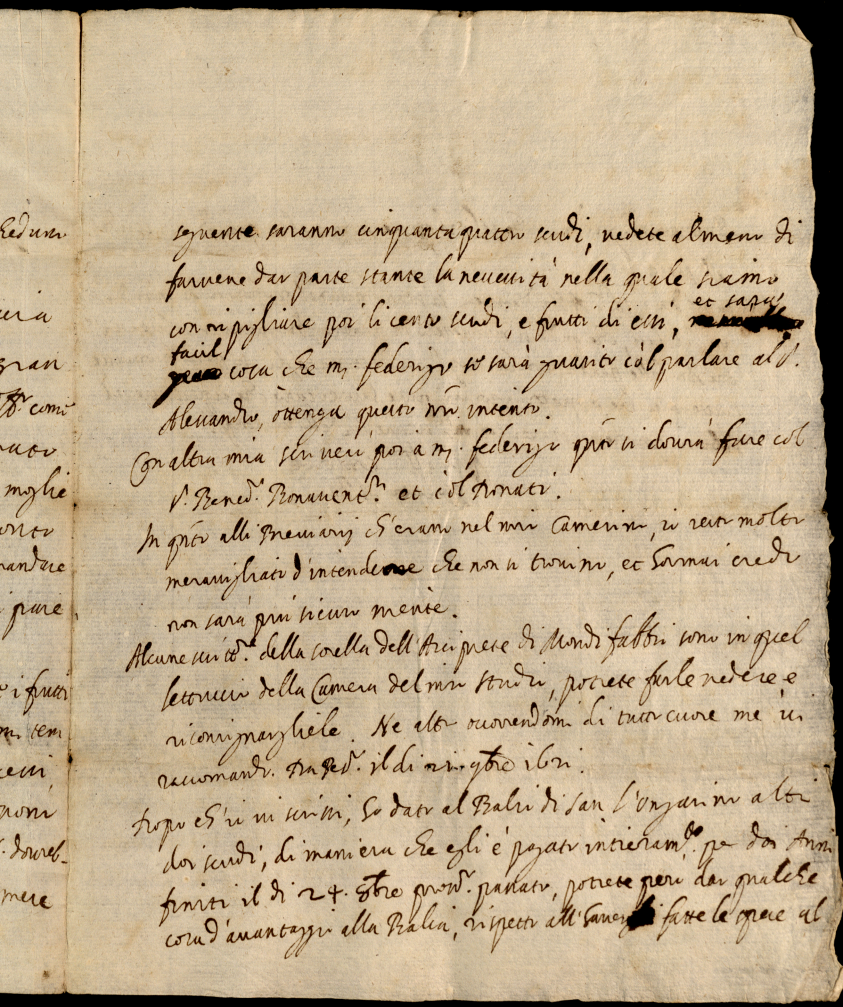 seguente saranno cinquanta quattro scudi, vedete almeno di
farvene dar parte stante la necessità nella quale siamo
con ripigliare poi li cento scudi, e frutti di essi, et sarà
facil cosa che m. federigo se sarà guarito còl parlare al S.
Alessandro, ottenga questo nro. intento.
Con altra mia scriverò poi à m. federigo qnto si dovrà fare col
S. Bened.o Bonavent.ra et còl Donati.
In qnto alli Breviarij ch'erano nel mio Camerino, io resto molto
meravigliato d'intendere che non si trovino, et hormai credo
non sarà più sicuro niente.
Alcune scritt.e della sorella dell'Arciprete di Mondi fabbri sono in quel
lettuccio della Camera del mio studio, potrete farle vedere e
riconsignargliele. Ne altro occorrendomi di tutto cuore me vi
raccomando. il di 9bre
Dopo ch'io vi scrissi, ho dato al Balio di San altri
doi scudi, di maniera che egli è pagato intieram.te per doi Anni
finiti il di 24. 8bre pross.o passato, potrete però dar qualche
cosa d'avantaggio alla Balia, rispetto all' fatte le spese al
hed
gran
come
moglie
mandare
pare
i frutti